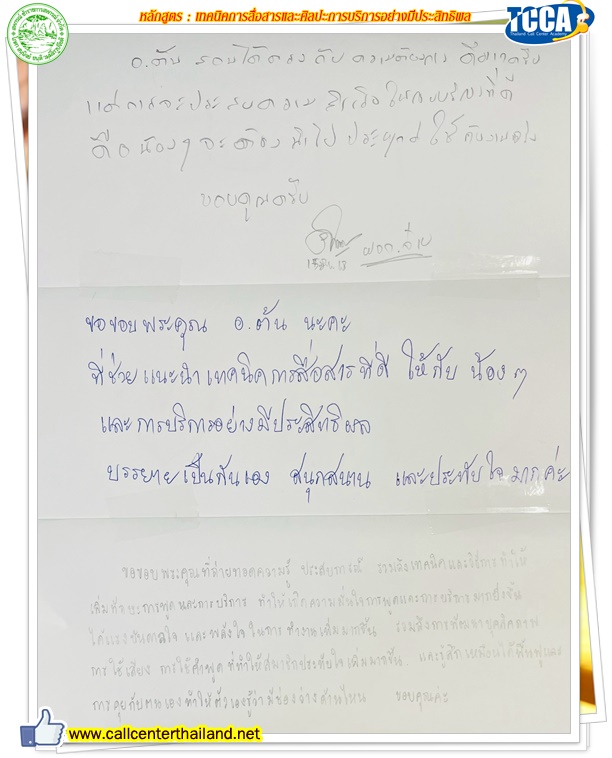 หลักสูตร : เทคนิคการสื่อสารและศิลปะการบริการอย่างมีประสิทธิผล
TCCA
Thailand Call Center Academy
อ.ต้น สอนได้ตรงกับความต้องการ ดีมากครับ
แต่การจะประสบความสำเร็จ ในงานบริการที่ดี
คือน้องๆ จะต้องนำไปประยุกต์ใช้
ขอบคุณครับ
ขอขอบพระคุณ อ.ต้น นะคะ
ที่ช่วยแนะนำเทคนิคการสื่อสารที่ดี ให้กับ น้องๆ
และการบริการอย่างมีประสิทธิผล
บรรยายเป็นกันเอง สนุกสนาน และประทับใจมากค่ะ
ขอขอบพระคุณที่ถ่ายทอดความรู้ ประสบการณ์ รวมถึงเทคนิคและวิธีการ ทำให้
เพิ่มทักษะการพูดและการบริการ ทำให้เกิดความมั่นใจการพูดและการบริการมากยิ่งขึ้น
ได้แรงบันดาลใจ และพลังใจ ในการทำงานเพิ่มมากขึ้น รวมถึงการพัฒนาบุคลิกภาพ
การใช้เสียง การใช้คำพูด ที่ทำให้สมาชิกประทับใจเพิ่มมากขึ้น และรู้สึกเหมือนได้ฟื้นฟูและ
การคุยกับตนเอง ทำให้ตัวเองรู้ว่ามีช่องว่างด้านไหน ขอบคุณค่ะ
www.callcenterthailand.net